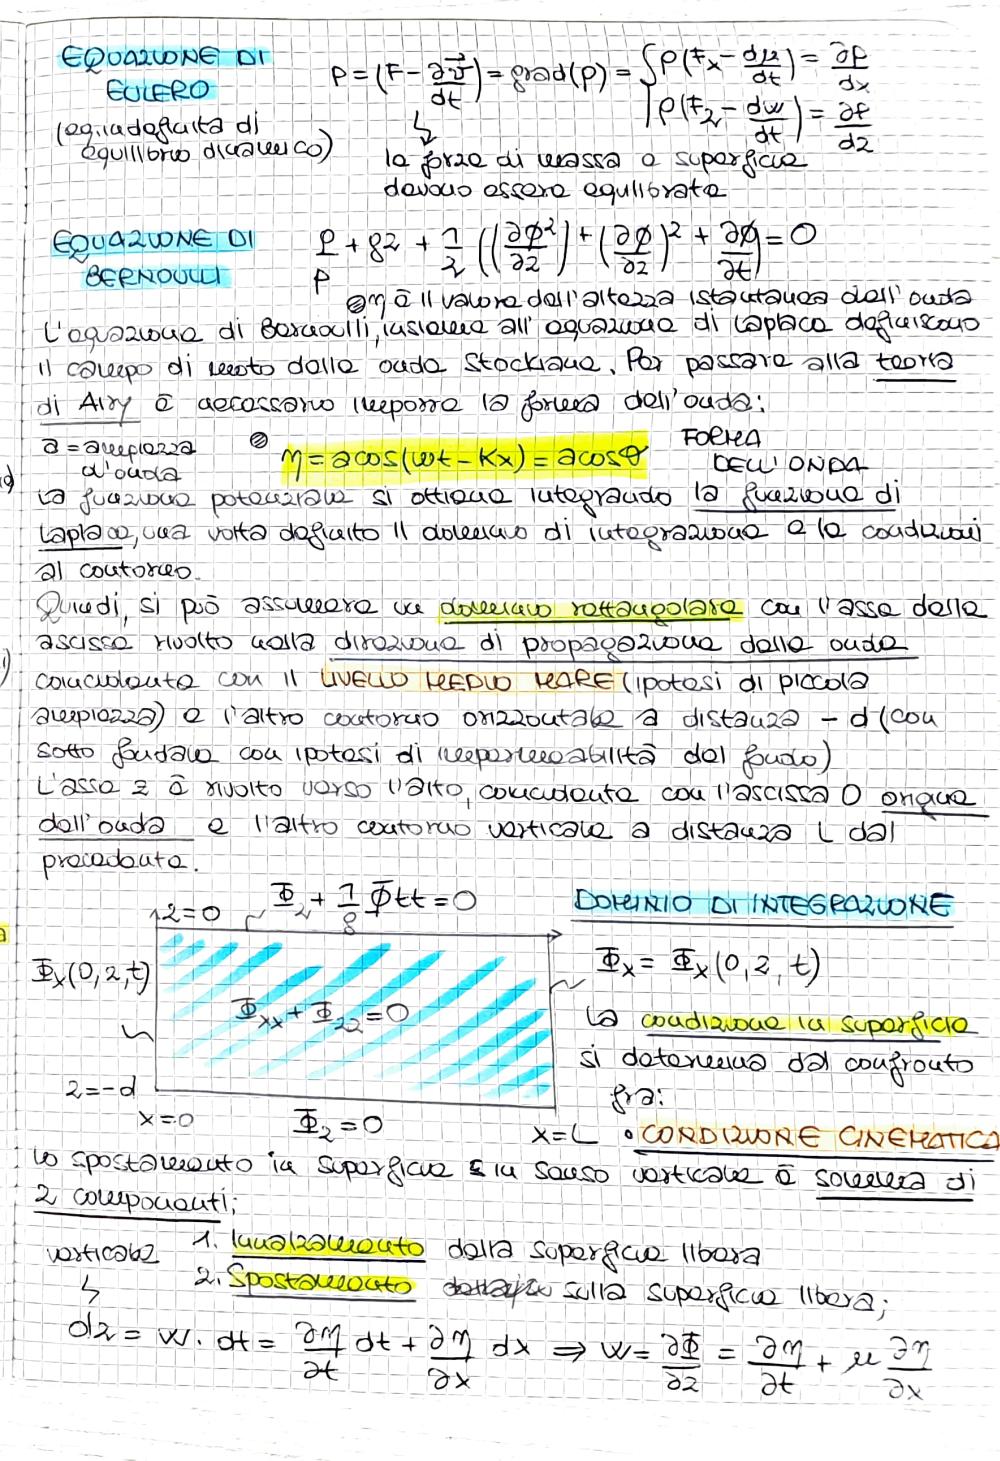 EQUAZIONE DI EULERO
P = (F - ∂v⃗/dt) = grad(p) = { ρ(Fx - du/dt) = ∂p/dx
ρ(Fz - dw/dt) = ∂p/dz
(equilibrio dinamico)
le forze di massa e superficie
devono essere equilibrate
EQUAZIONE DI BERNOULLI
p/ρ + gz + 1/2 ((∂φ²/∂z) + (∂φ/∂z)² + ∂φ/∂t) = 0
η è il valore dell'altezza istantanea dell'onda
L'equazione di Bernoulli, insieme all'equazione di Laplace definiscono
il campo di moto delle onde Stockiane. Per passare alla teoria
di Airy è necessario imporre la forma dell'onda:
a = ampiezza d'onda
η = acos(ωt - Kx) = acosθ
FORMA DELL'ONDA
La funzione potenziale si ottiene integrando la funzione di
Laplace, una volta definito il dominio di integrazione e le condizioni
al contorno.
Quindi, si può assumere un dominio rettangolare con l'asse delle
ascisse rivolto nella direzione di propagazione delle onde
coincidente con il LIVELLO MEDIO MARE (ipotesi di piccola
ampiezza) e l'altro contorno orizzontale a distanza - d (con
sotto fondale con ipotesi di impermeabilità del fondo)
L'asse z è rivolto verso l'alto, coincidente con l'ascissa 0 origine
dell'onda e l'altro contorno verticale a distanza L dal
precedente.
z=0
Φz + 1/g Φtt = 0
DOMINIO DI INTEGRAZIONE
Φx(0,z,t)
Φxx + Φzz = 0
Φx = Φx(0,z,t)
La condizione in superficie
si determina dal confronto
fra:
z=-d
x=0
Φz = 0
x=L
• CONDIZIONE CINEMATICA
Lo spostamento in superficie in senso verticale è somma di
2 componenti;
verticale
1. Innalzamento della superficie libera
2. Spostamento sulla superficie libera;
dz = w · dt = ∂η/∂t dt + ∂η/∂x dx ⇒ w = ∂Φ/∂z = ∂η/∂t + u ∂η/∂x